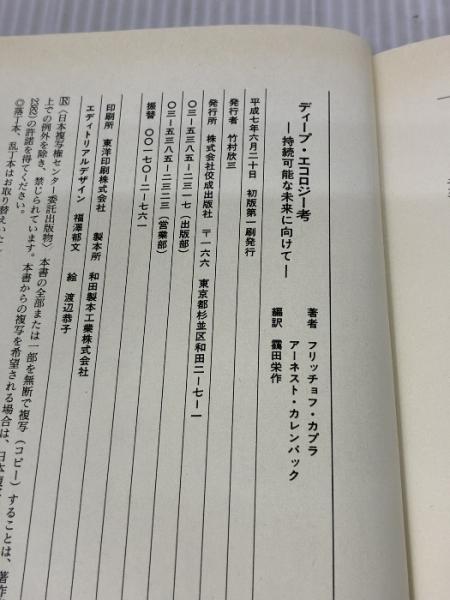 ディープ・エコロジー考
―持続可能な未来に向けて―
著者 フリッチョフ・カプラ
アーネスト・カレンバック
編訳 靍田栄作
平成七年六月二十日 初版第一刷発行
発行者 竹村欣三
発行所 株式会社佼成出版社 〒一六六 東京都杉並区和田二-七-一
〇三-五三八五-二三一七(出版部)
〇三-五三八五-二三二三(営業部)
振替 〇〇一七〇-二-七六一
印刷所 東洋印刷株式会社 製本所 和田製本工業株式会社
エディトリアルデザイン 福澤郁文 絵 渡辺恭子
Ⓡ〈日本複写権センター委託出版物〉本書の全部または一部を無断で複写(コピー)することは、著作
上での例外を除き、禁じられています。本書からの複写を希望される場合は、日本複
2382)の許諾を得てください。
◎落丁本、乱丁本はお取り替えいたし